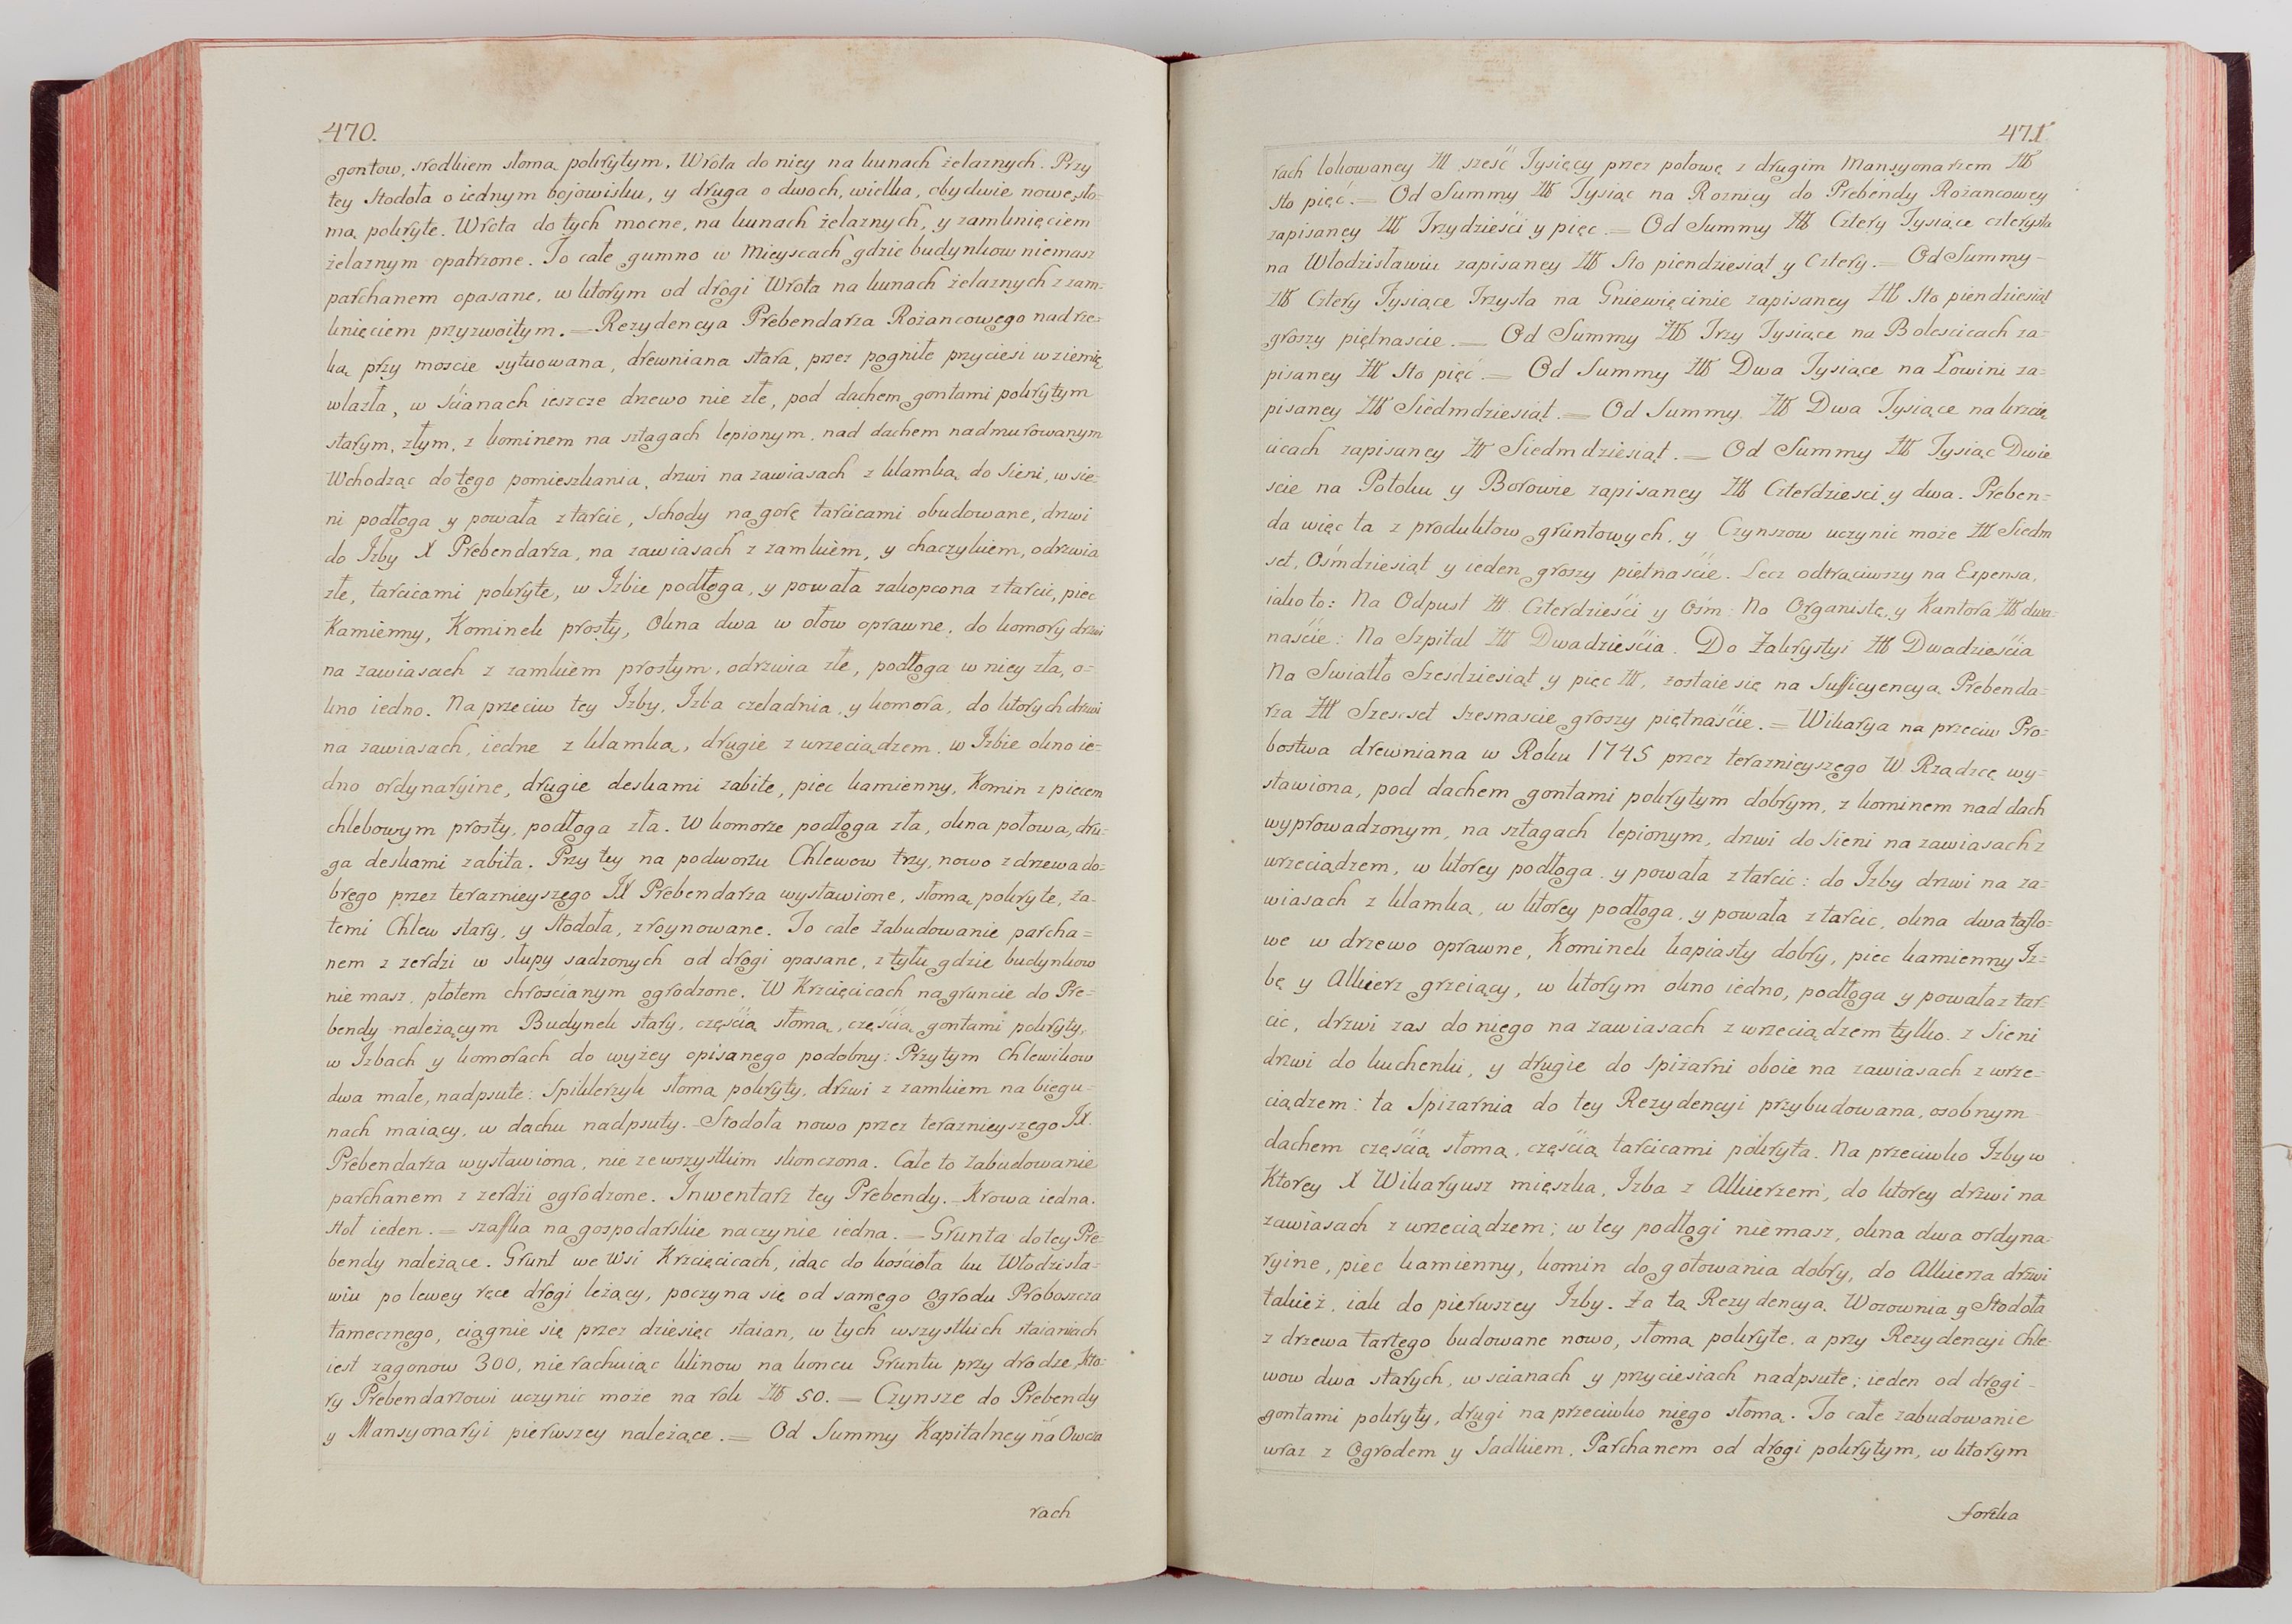 470.
gontow, srodkiem słomą pokrytym, Wrota do niey na kunach żelaznych. Przy
tey Stodoła o iednym bojowisku, y druga o dwoch, wielka, obydwie nowe, sło-
mą pokryte. Wrota do tych mocne, na kunach żelaznych, y zamknięciem
żelaznym opatrzone. To całe gumno w Mieyscach gdzie budynkow niemasz
parchanem opasane, w ktorym od drogi Wrota na kunach żelaznych z zam-
knięciem przyzwoitym. = Rezydencya Prebendarza Rożancowego nad rze-
ką przy moscie sytuowana, drewniana stara, przez pogniłe przyciesi w ziemię
wlazła, w ścianach ieszcze drzewo nie złe, pod dachem gontami pokrytym
starym, złym, z kominem na sztagach lepionym, nad dachem nadmurowanym
Wchodząc do tego pomieszkania, drzwi na zawiasach z klamką do Sieni, w sie-
ni podłoga y powała z tarcic, Schody na gorę tarcicami obudowane, drzwi
do Izby X Prebendarza, na zawiasach z zamkiem, y haczykiem, odrzwia
złe, tarcicami pokryte, w Izbie podłoga, y powała zakopcona z tarcic, piec
Kamienny, Kominek prosty, Okna dwa w ołow oprawne, do komory drzwi
na zawiasach z zamkiem prostym, odrzwia złe, podłoga w niey zła, o-
kno iedno. Na przeciw tey Izby, Izba czeladnia, y komora, do ktorych drzwi
na zawiasach, iedne z klamką, drugie z wrzeciądzem, w Izbie okno ie-
dno ordynaryine, drugie deskami zabite, piec kamienny, Komin z piecem
chlebowym prosty, podłoga zła. W komorze podłoga zła, okna połowa, dru-
ga deskami zabita. Przy tey na podworzu Chlewow trzy, nowo z drzewa do-
brego przez teraznieyszego IX Prebendarza wystawione, słomą pokryte, za-
temi Chlew stary, y Stodoła, zroynowane. To całe Zabudowanie parcha=
nem z zerdzi w słupy sadzonych od drogi opasane, z tyłu gdzie budynkow
nie masz, płotem chrościanym ogrodzone. W Krzcięcicach na gruncie do Pre-
bendy należącym Budynek stary, częścią słomą, częścią gontami pokryty,
w Izbach y komorach do wyżey opisanego podobny: Przytym Chlewikow
dwa małe, nadpsute: Spiklerzyk słomą pokryty, drzwi z zamkiem na biegu-
nach maiący, w dachu nadpsuty. Stodoła nowo przez teraznieyszego IX.
Prebendarza wystawiona, nie ze wszystkim skonczona. Całe to Zabudowanie
parchanem z zerdzi ogrodzone. Inwentarz tey Prebendy. Krowa iedna.
Stoł ieden. = szafka na gospodarskie naczynie iedna. = Grunta do tey Pre-
bendy należące. Grunt we Wsi Krzcięcicach, idąc do kościoła ku Włodzisła-
wiu po lewey ręce drogi leżący, poczyna się od samego Ogrodu Proboszcza
tamecznego, ciągnie się przez dziesięc staian, w tych wszystkich staianiach
iest zagonow 300, nie rachuiąc klinow na koncu Gruntu przy drodze, Kto-
ry Prebendarzowi uczynic może na rok Złł 50. = Czynsze do Prebendy
y Mansyonaryi pierwszey należące. = Od Summy Kapitalney na Owcza
rach
471
rach lokowaney Złł sześć Tysięcy przez połowę z drugim Mansyonarzem Złł
sto pięć. = Od Summy Złł Tysiąc na Roznicy do Prebendy Rożancowey
zapisaney Złł Trzydzieści y pięc. = Od Summy Złł Cztery Tysiące czterysta
na Włodzisławiu zapisaney Złł Sto piendziesiąt y Cztery. = Od Summy
Złł Cztery Tysiące Trzysta na Gniewięcinie zapisaney Złł Sto piendziesiąt
groszy piętnascie. = Od Summy Złł Trzy Tysiące na Bolescicach za-
pisaney Złł Sto pięć. = Od Summy Złł Dwa Tysiące na Łowini za-
pisaney Złł Siedmdziesiąt. = Od Summy Złł Dwa Tysiące na krzcię
cicach zapisaney Złł Siedmdziesiąt. = Od Summy Złł Tysiąc Dwie
scie na Potoku y Borowie zapisaney Złł Czterdziesci y dwa. Preben-
da więc ta z produktow gruntowych, y Czynszow uczynic może Złł Siedm
set, Ośmdziesiąt y ieden groszy piętnaście. Lecz odtrąciwszy na Expensa,
iako to: Na Odpust Złł Czterdzieści y Ośm: Na Organistę y Kantora Złł dwa-
naście: Na Szpital Złł Dwadzieścia. Do Zakrystyi Złł Dwadzieścia
Na Swiatło Szesdziesiąt y pięc Złł, zostaie się na Sufficyencyą Prebenda-
rza Złł Szescset szesnascie groszy piętnaście. = Wikarya na przeciw Pro-
bostwa drewniana w Roku 1745 przez teraznieyszego W. Rządzcę wy-
stawiona, pod dachem gontami pokrytym dobrym, z kominem nad dach
wyprowadzonym, na sztagach lepionym, drzwi do Sieni na zawiasach z
wrzeciądzem, w ktorey podłoga, y powała z tarcic: do Izby drzwi na za-
wiasach z klamką, w ktorey podłoga, y powała z tarcic, okna dwa taflo-
we w drzewo oprawne, Kominek kapiasty dobry, piec kamienny Iz-
bę y Alkierz grzeiący, w ktorym okno iedno, podłoga y powała z tar-
cic, drzwi zas do niego na zawiasach z wrzeciądzem tylko. z Sieni
drzwi do kuchenki, y drugie do spiżarni oboie na zawiasach z wrze-
ciądzem: ta Spizarnia do tey Rezydencyi przybudowana, osobnym
dachem częścią słomą, częścią tarcicami pokryta. Na przeciwko Izby w
Ktorey X Wikaryusz mięszka, Izba z Alkierzem, do ktorey drzwi na
zawiasach z wrzeciądzem; w tey podłogi niemasz, okna dwa ordyna-
ryine, piec kamienny, komin do gotowania dobry, do Alkierza drzwi
takież, iak do pierwszey Izby. Za tą Rezydencyą Wozownia y Stodoła
z drzewa tartego budowane nowo, słomą pokryte, a przy Rezydencyi Chle
wow dwa starych, w scianach y przyciesiach nadpsute; ieden od drogi
gontami pokryty, drugi na przeciwko niego słomą. To całe zabudowanie
wraz z Ogrodem y Sadkiem, Parchanem od drogi pokrytym, w ktorym
fortka